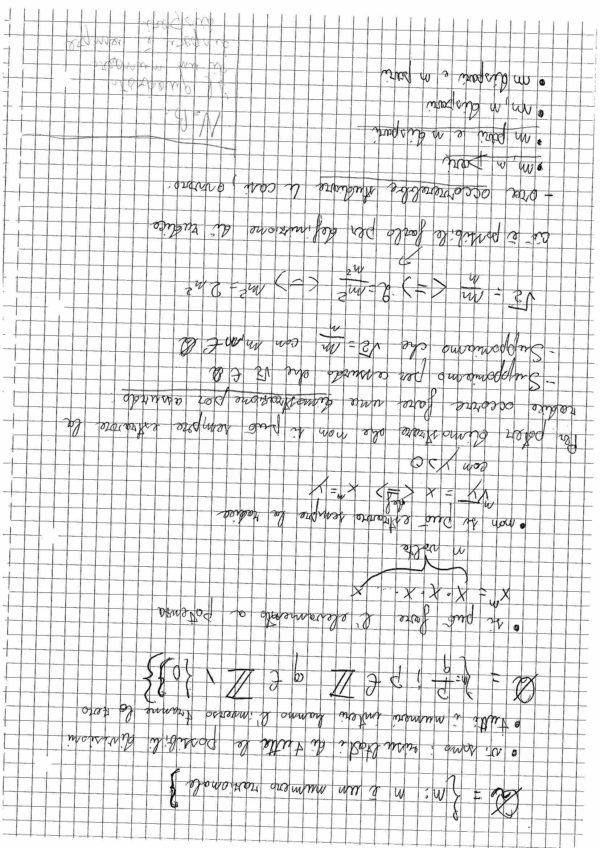 Q = { m : m è un numero razionale }
• vi sono i risultati di tutte le possibili divisioni
• tutti i numeri interi hanno l'inverso tranne lo zero
Q = { n = p/q ; p ∈ Z q ∈ Z \ {0} }
• si può fare l'elevamento a potenza
xⁿ = x · x · x · ..... x
n volte
• non si può estrarre sempre la radice
ⁿ√y = x <=> xⁿ = y
def
con y > 0
Per poter dimostrare che non si può sempre estrarre la
radice occorre fare una dimostrazione per assurdo
- Supponiamo per assurdo che √2 ∈ Q
- Supponiamo che √2 = m/n con m, n ∈ Q
√2 = m/n <=> 2 = m²/n² <=> m² = 2n²
ciò è possibile farlo per definizione di radice
- ora occorrerebbe studiare 4 casi, ovvero:
• m, n pari
• m pari e n dispari
• m, n dispari
• m dispari e n pari
N.B.
il quadrato
di un numero
dispari è sempre
dispari